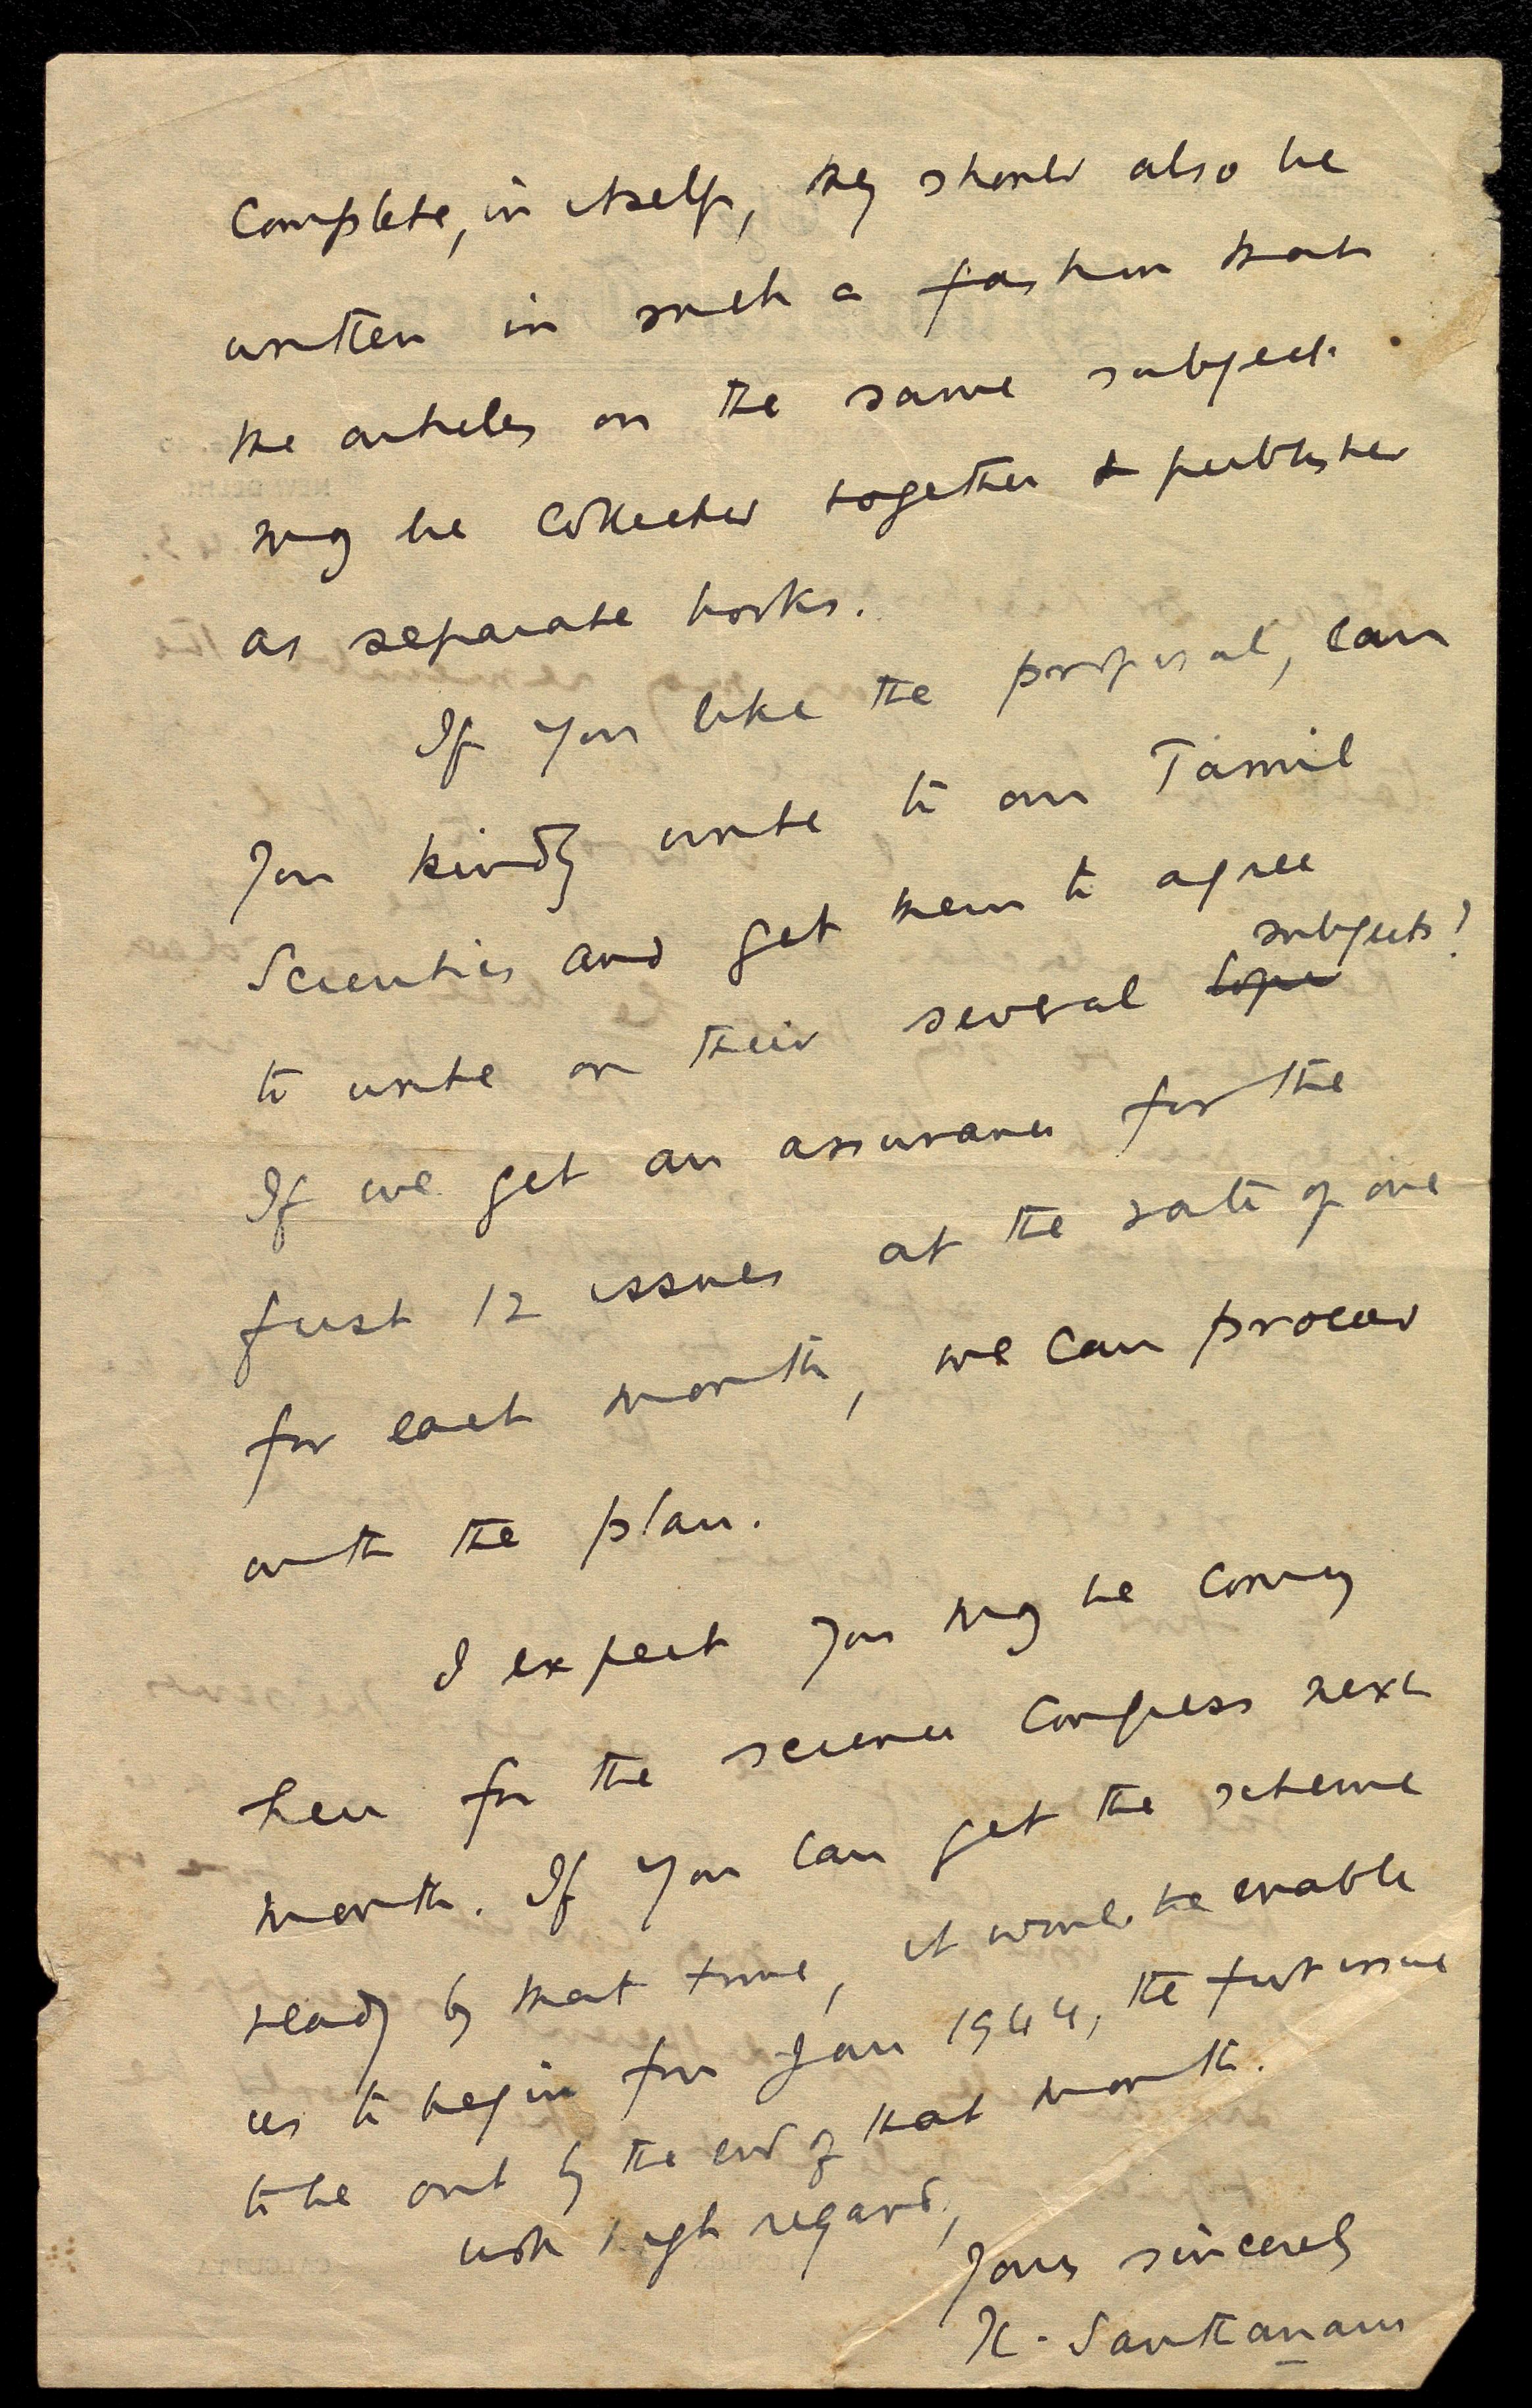 Complete, in itself, they should also be
written in such a fashion that
the articles on the same subject
may be collected together & published
as separate books.
If you like the proposal, can
you kindly write to our Tamil
Scientists and get them to agree
subjects?
to write on their several
If we get an assurance for the
first 12 issues at the rate of one
for each month, we can proceed
with the plan.
I expect you may be coming
here for the science Congress next
month. If you can get the scheme
ready by that time, it would be enable
us to begin for Jan 1944, the first issue
to be out by the end of that month.
with high regards,
Yours sincerely
K. Santhanam